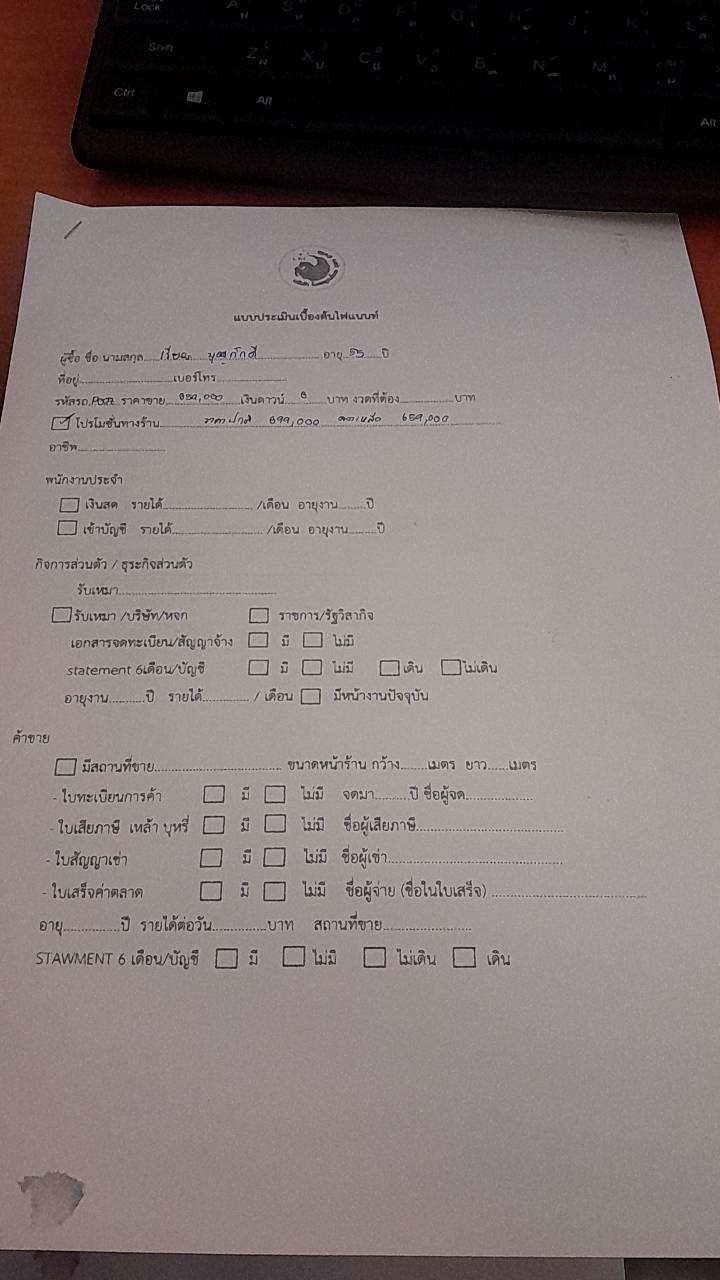 Lock A S D F G H J K L
Shift Z X C V B N M
Ctrl Alt Alt
แบบประเมินเบื้องต้นไฟแนนท์
ผู้ซื้อ ชื่อ นามสกุล............อายุ..55....ปี
ที่อยู่..........................เบอร์โทร...................
รหัสรถ. ราคาขาย...659,000....เงินดาวน์...0....บาท งวดที่ต้อง...............บาท
โปรโมชั่นทางร้าน............ 699,000 ลดเหลือ 659,000
อาชีพ........................
พนักงานประจำ
เงินสด รายได้......................../เดือน อายุงาน........ปี
เข้าบัญชี รายได้......................../เดือน อายุงาน........ปี
กิจการส่วนตัว / ธุระกิจส่วนตัว
รับเหมา..........................................
รับเหมา /บริษัท/หจก ราชการ/รัฐวิสากิจ
เอกสารจดทะเบียน/สัญญาจ้าง มี ไม่มี
statement 6เดือน/บัญชี มี ไม่มี เดิน ไม่เดิน
อายุงาน...........ปี รายได้............. / เดือน มีหน้างานปัจจุบัน
ค้าขาย
มีสถานที่ขาย................................. ขนาดหน้าร้าน กว้าง.......เมตร ยาว......เมตร
- ใบทะเบียนการค้า มี ไม่มี จดมา.........ปี ชื่อผู้จด.................
- ใบเสียภาษี เหล้า บุหรี่ มี ไม่มี ชื่อผู้เสียภาษี.....................................
- ใบสัญญาเช่า มี ไม่มี ชื่อผู้เช่า............................................
- ใบเสร็จค่าตลาด มี ไม่มี ชื่อผู้จ่าย (ชื่อในใบเสร็จ) .......................................
อายุ..............ปี รายได้ต่อวัน..............บาท สถานที่ขาย......................
STAWMENT 6 เดือน/บัญชี มี ไม่มี ไม่เดิน เดิน